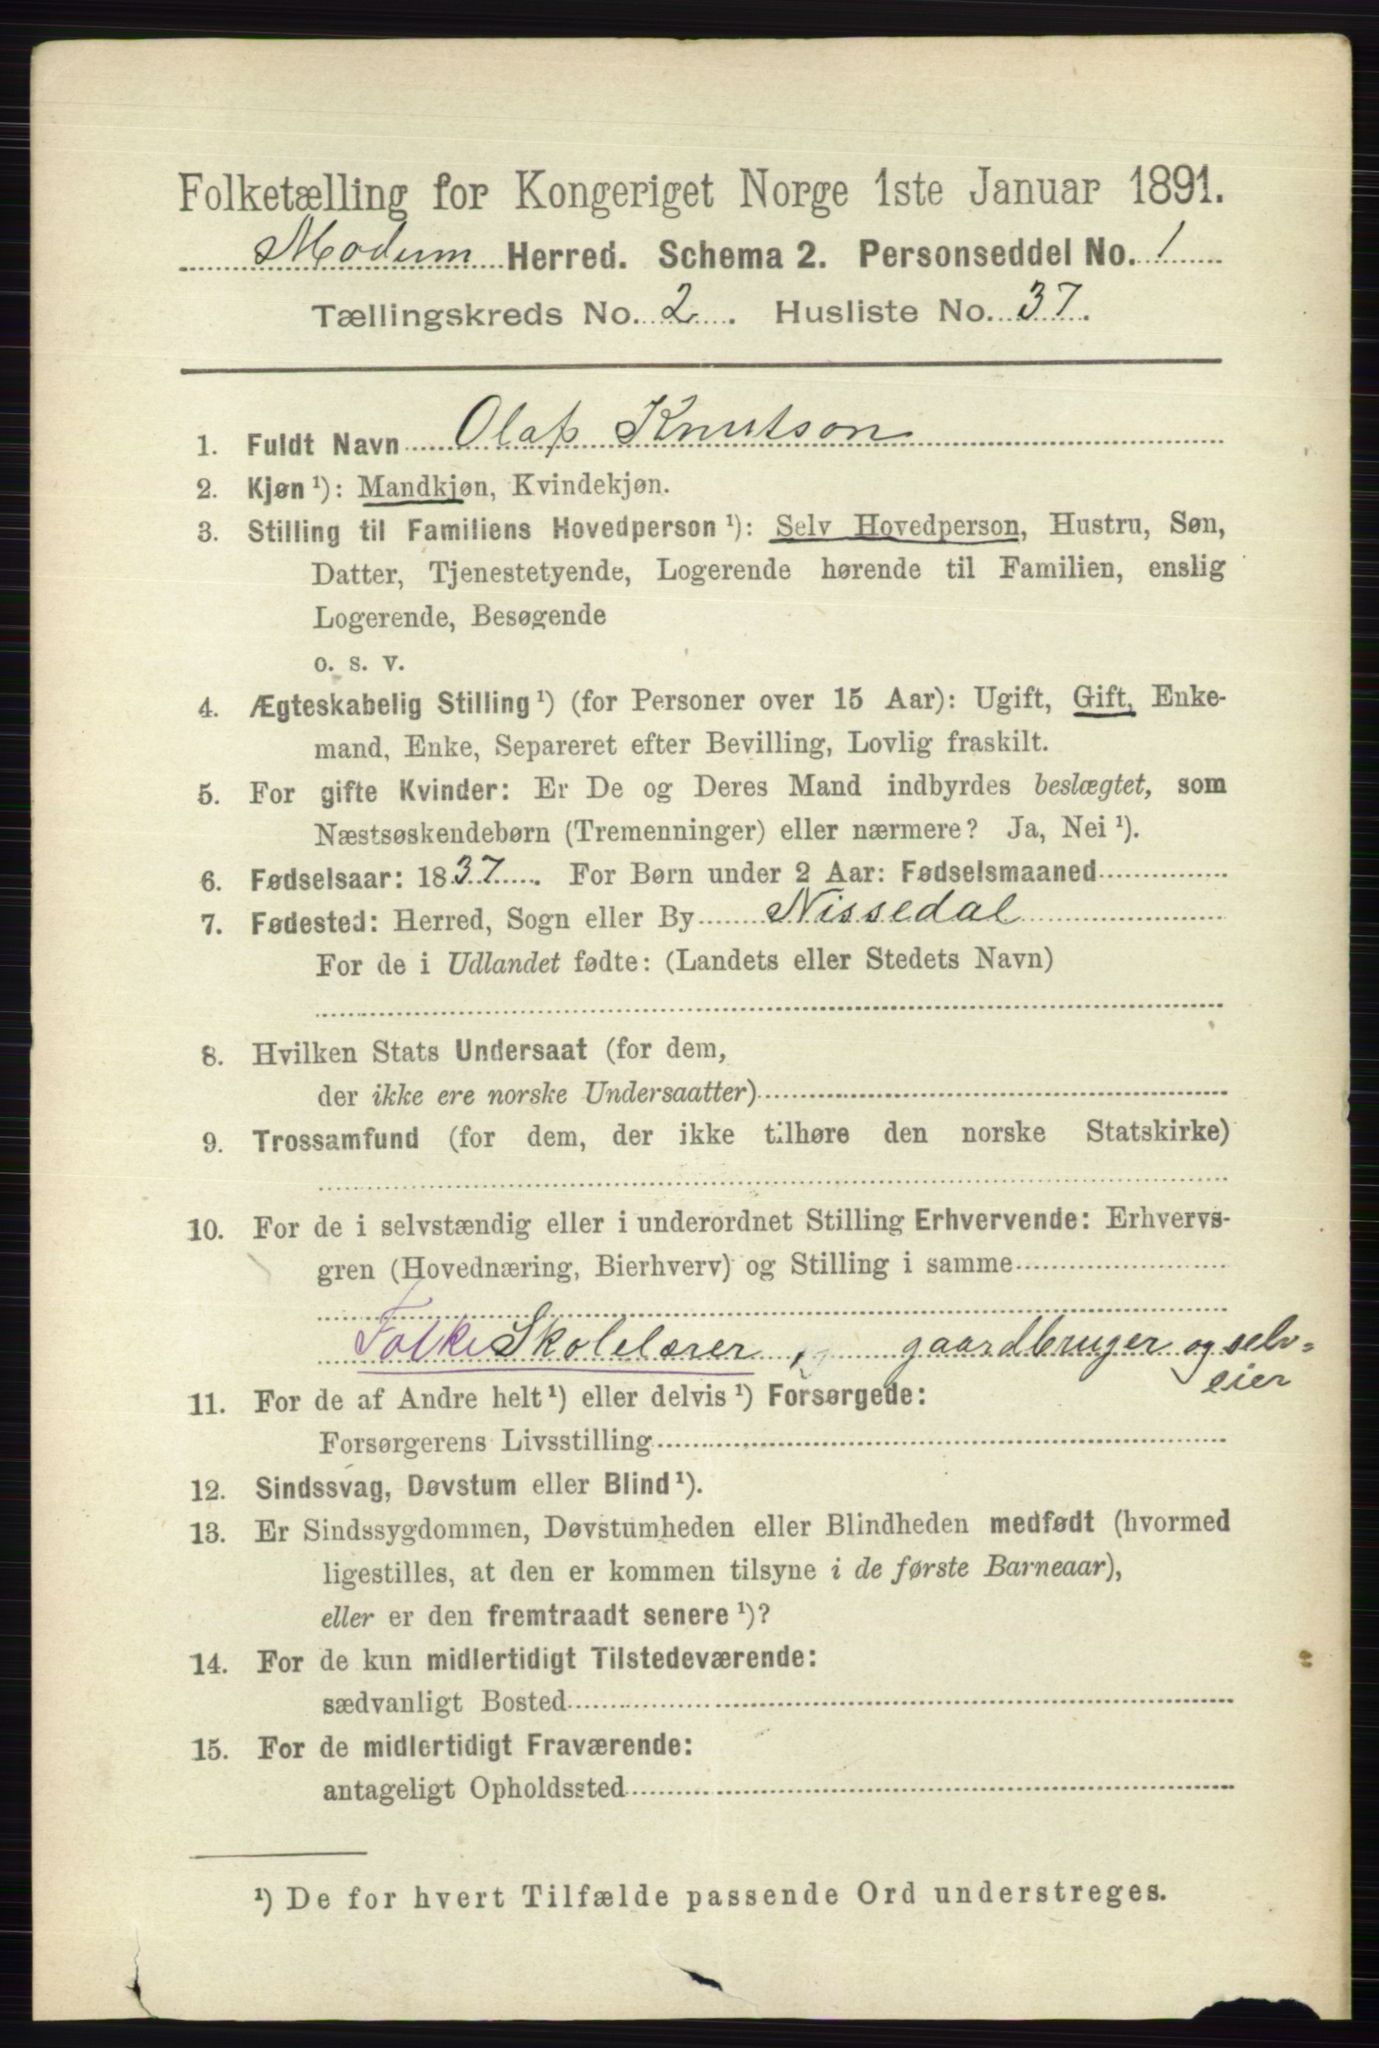 Folketælling for Kongeriget Norge 1ste Januar 1891.
Modum Herred. Schema 2. Personseddel No. 1
Tællingskreds No. 2. Husliste No. 37.
1. Fuldt Navn Olaf Knutson
2. Kjøn ¹): Mandkjøn, Kvindekjøn.
3. Stilling til Familiens Hovedperson ¹): Selv Hovedperson, Hustru, Søn,
Datter, Tjenestetyende, Logerende hørende til Familien, enslig
Logerende, Besøgende
o. s. v.
4. Ægteskabelig Stilling ¹) (for Personer over 15 Aar): Ugift, Gift, Enke-
mand, Enke, Separeret efter Bevilling, Lovlig fraskilt.
5. For gifte Kvinder: Er De og Deres Mand indbyrdes beslægtet, som
Næstsøskendebørn (Tremenninger) eller nærmere? Ja, Nei ¹).
6. Fødselsaar: 1837. For Børn under 2 Aar: Fødselsmaaned
7. Fødested: Herred, Sogn eller By Nissedal
For de i Udlandet fødte: (Landets eller Stedets Navn)
8. Hvilken Stats Undersaat (for dem,
der ikke ere norske Undersaatter)
9. Trossamfund (for dem, der ikke tilhøre den norske Statskirke)
10. For de i selvstændig eller i underordnet Stilling Erhvervende: Erhvervs-
gren (Hovednæring, Bierhverv) og Stilling i samme
Folke Skolelærer, gaardbruger og selv=
eier
11. For de af Andre helt ¹) eller delvis ¹) Forsørgede:
Forsørgerens Livsstilling
12. Sindssvag, Døvstum eller Blind ¹).
13. Er Sindssygdommen, Døvstumheden eller Blindheden medfødt (hvormed
ligestilles, at den er kommen tilsyne i de første Barneaar),
eller er den fremtraadt senere ¹)?
14. For de kun midlertidigt Tilstedeværende:
sædvanligt Bosted
15. For de midlertidigt Fraværende:
antageligt Opholdssted
¹) De for hvert Tilfælde passende Ord understreges.